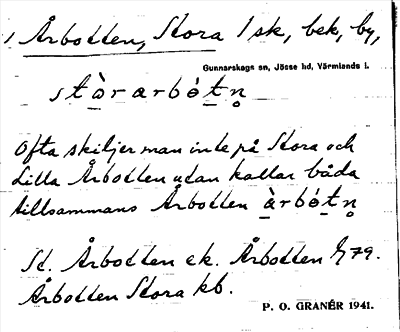 Årbotten, Stora 1 sk, bek, by,
Gunnarskogs sn, Jösse hd, Värmlands l.
stòrarbótn̥
Ofta skiljer man inte på Stora och
Lilla Årbotten utan kallar båda
tillsammans Årbotten àrbótn̥
Sd. Årbotten ek. Årbotten 79.
Årbotten Stora kb.
P. O. GRANÉR 1941.